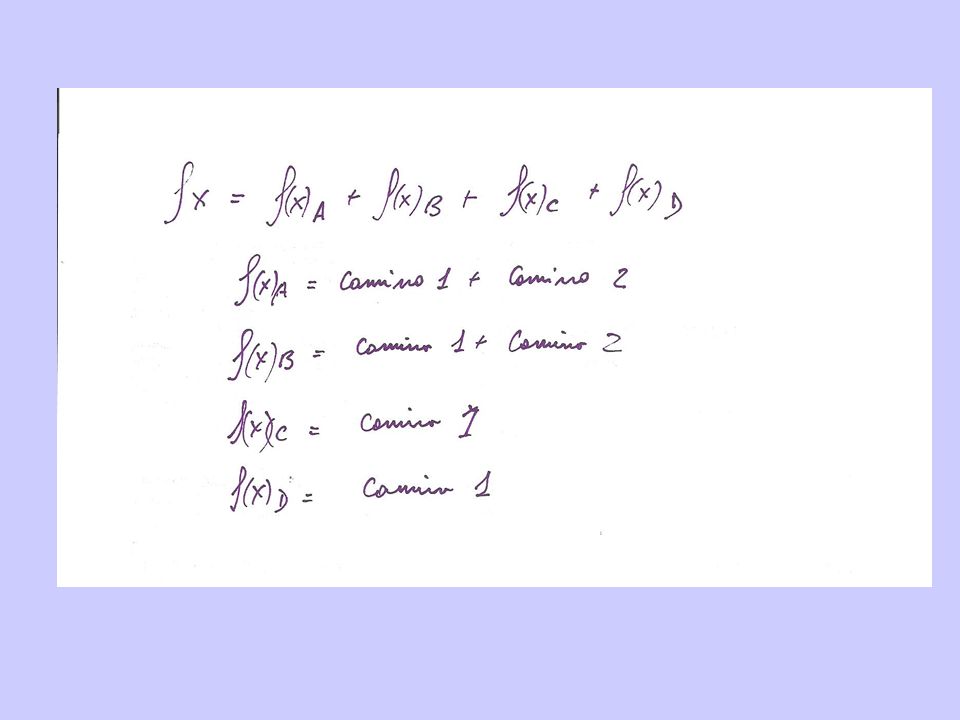 fx = f(x)A + f(x)B + f(x)C + f(x)D
f(x)A = Camino 1 + Camino 2
f(x)B = Camino 1 + Camino 2
f(x)C = Camino 1
f(x)D = Camino 1